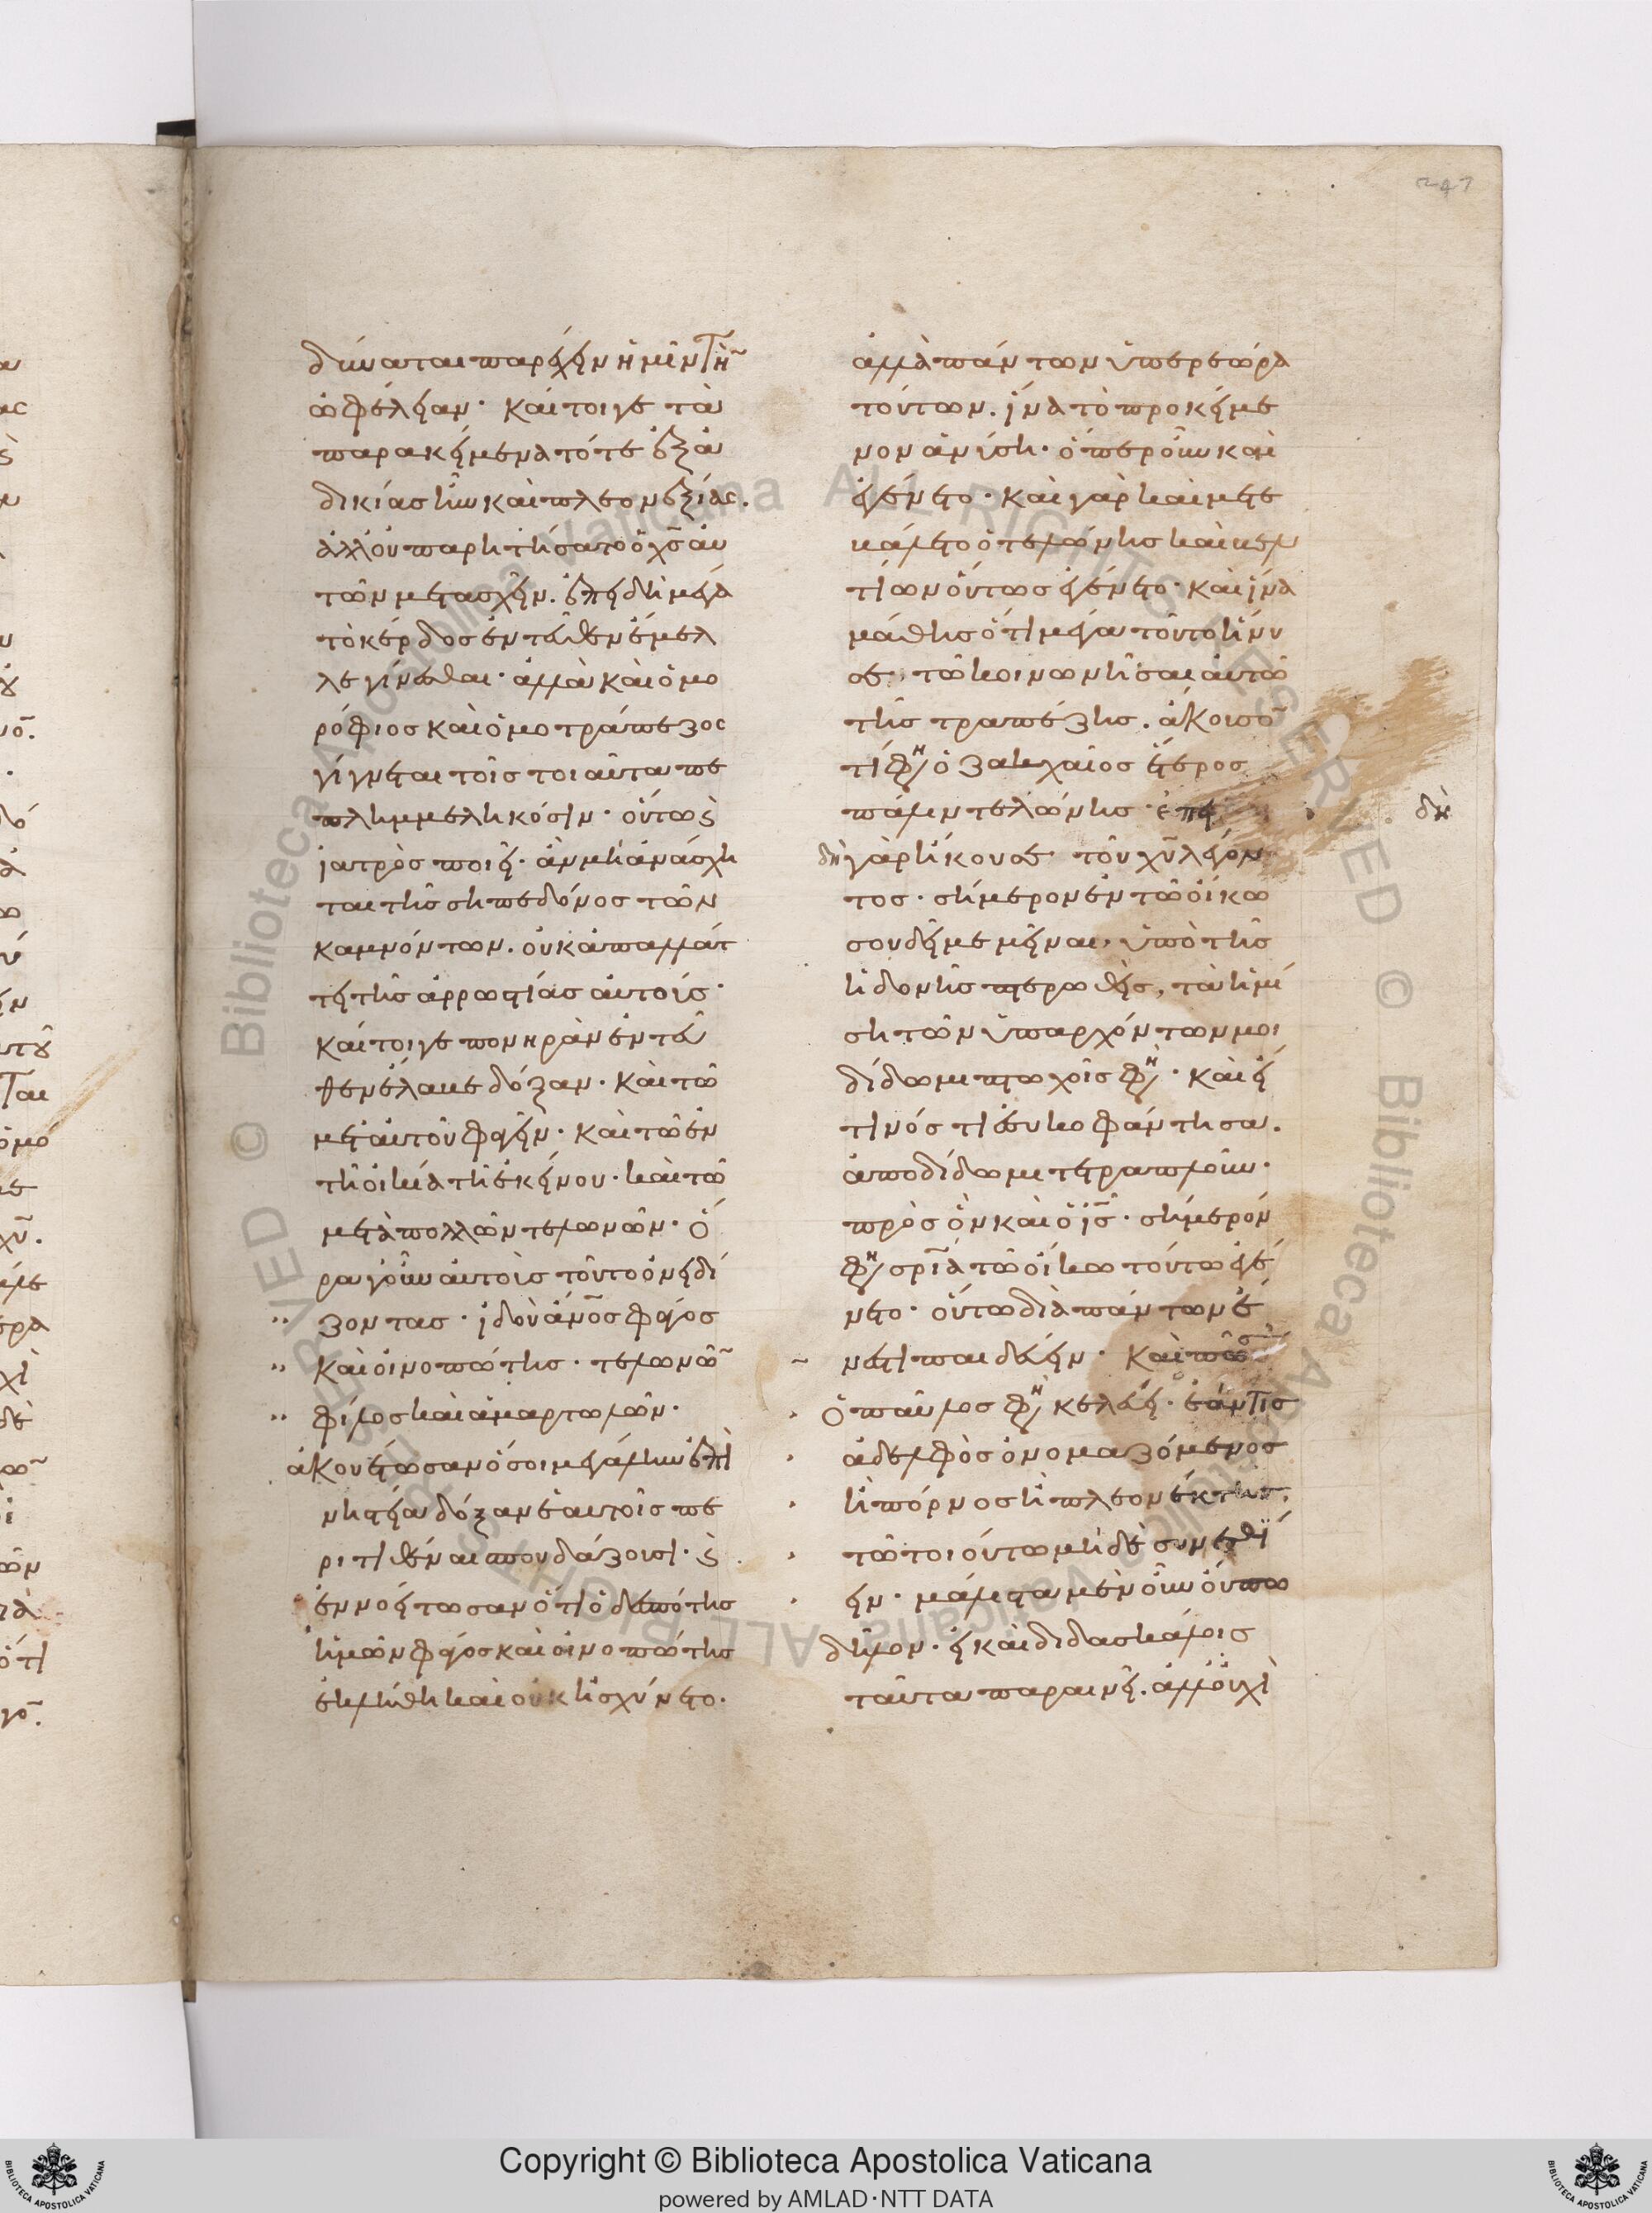 δύναται παρέχειν ἡμῖν τὴ̄
ὠφέλειαν· καίτοιγε τὰ
παρακείμενα τότε ἐξ ἀ
δικίας ἦν καὶ πλεονεξίας.
ἀλλ' οὐ παρητήσατο ὁ χς̄ αὐ
τῶν μετασχεῖν. ἐπειδὴ μέγα
τὸ κέρδος ἐντεῦθεν ἔμελ
λε γίνεσθαι· ἀλλὰ καὶ ὁμο
ρόφιος καὶ ὁμοτράπεζος
γίγνεται τοῖς τοιαῦτα πε
πλημμεληκόσιν· οὕτως
ἰατρὸς ποιεῖ· ἂν μὴ ἀνάσχη
ται τῆς σηπεδόνος τῶν
καμνόντων. οὐκ ἀπαλλάτ
τει τῆς ἀρρωστίας αὐτούς·
καίτοιγε πονηρὰν ἐντεῦ
θεν ἔλαβε δόξαν· καὶ τῶ
μετ' αὐτοῦ φαγεῖν· καὶ τῶ ἐν
τῆ οἰκία τῆ ἐκείνου· καὶ τῶ
μετὰ πολλῶν τελωνῶν· ὅ
ρα γοῦν αὐτοὺς τοῦτο ὀνειδί
ζοντας· ἰδοὺ ἄνο̄ς φάγος
καὶ οἰνοπώτης· τελωνῶ̄
φίλος καὶ ἁμαρτωλῶν·
ἀκουέτωσαν ὅσοι μεγάλην ἐπὶ
νηστεία δόξαν ἑαυτοῖς πε
ριτιθέναι σπουδάζουσι· ϛ
ἐννοείτωσαν ὅτι ὁ δεσπότης
ἡμῶν φάγος καὶ οἰνοπώτης
ἐκλήθη καὶ οὐκ ἠσχύνετο·
ἀλλὰ πάντων ὑπερεώρα
τούτων. ἵνα τὸ προκείμε
νον ἀνύση· ὅπερ οὖν καὶ
ἐγένετο· καὶ γὰρ καὶ μετε
βάλετο ὁ τελώνης καὶ βελ
τίων οὕτως ἐγένετο· καὶ ἵνα
μάθης ὅτι μέγα τοῦτο ἤνυ
σε, τῶ κοινωνῆσαι αὐτῶ
τῆς τραπέζης. ἄκουσō
τί φη ὁ ζακχαῖος ἕτερος
πάλιν τελώνης· ἐπει
δὴ
δὴ γὰρ ἤκουσε τοῦ χῡ λέγον
τος· σήμερον ἐν τῶ οἴκω
σου δεῖ με μεῖναι, ὑπὸ τῆς
ἡδονῆς πτερωθεὶς, τὰ ἡμί
ση τῶν ὑπαρχόντων μοι
δίδωμι πτωχοῖς φη· καὶ εἴ
τινός τι ἐσυκοφάντησα.
ἀποδίδωμι τετραπλοῦν·
πρὸς ὃν καὶ ὁ ις̄· σήμερόν
φη σρ̄ία τῶ οἴκω τούτω ἐγέ
νετο· οὕτω διὰ πάντων ἔ
νεστι παιδεύειν· καὶ πῶς
ὁ παῦλος φη κελεύει· ἐάν τις
ἀδελφὸς ὀνομαζόμενος
ἢ πόρνος ἢ πλεονέκτης.
τῶ τοιούτω μὴ δὲ συνεσθί
ειν· μάλιστα μὲν οὖν οὔπω
δῆλον· εἰ καὶ διδασκάλοις
ταῦτα παραινεῖ. ἀλλ' οὐχὶ